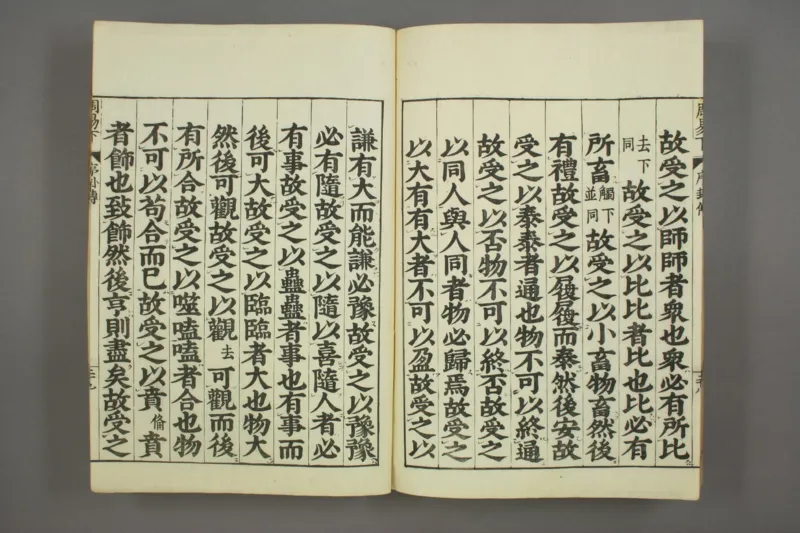 故受之以師師者衆也衆必有所比
去下同 故受之以比比者比也比必有
所畜觸下並同 故受之以小畜物畜然後
有禮故受之以履履而泰然後安故
受之以泰泰者通也物不可以終通
故受之以否物不可以終否故受之
以同人與人同者物必歸焉故受之
以大有有大者不可以盈故受之以
謙有大而能謙必豫故受之以豫豫
必有隨故受之以隨以喜隨人者必
有事故受之以蠱蠱者事也有事而
後可大故受之以臨臨者大也物大
然後可觀故受之以觀去可觀而後
有所合故受之以噬嗑嗑者合也物
不可以苟合而已故受之以賁 賁
者飾也致飾然後亨則盡矣故受之